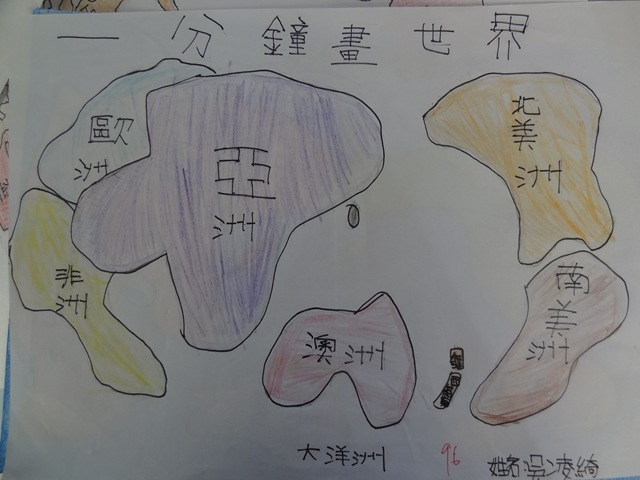 一分鐘畫世界
歐洲
亞洲
非洲
北美洲
南美洲
澳洲
大洋洲
96
姓名吳凌綺